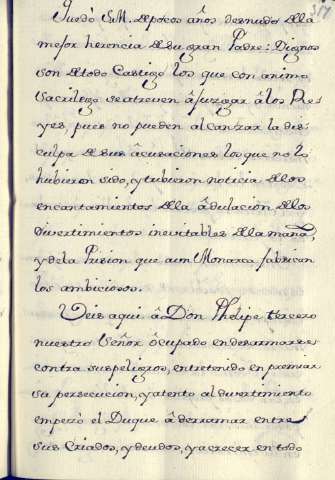 Quedò S.M. de pocos años desnudo de la
mejor herencia de su gran Padre: Dignos
son de todo Castigo los que con animo
Sacrilego se atreven â juzgar â los Re
yes, pues no pueden alcanzar la dis
culpa de sus âcusaciones los que no lo
hubieron sido, y tubieron noticia de los
encantamientos de la âdulacion, de los
divertimientos inevitables de la maña,
y de la Prision que a un Monarca fabrican
los ambiciosos.
Veis aqui â Don Phelipe tercero
nuestro Señor ôcupado en desarmarse
contra sus peligros, entretenido en premiar
su persecucion, y atento al divertimiento
empezò el Duque â derramar entre
sus Criados, y deudos, y a crecer en todo